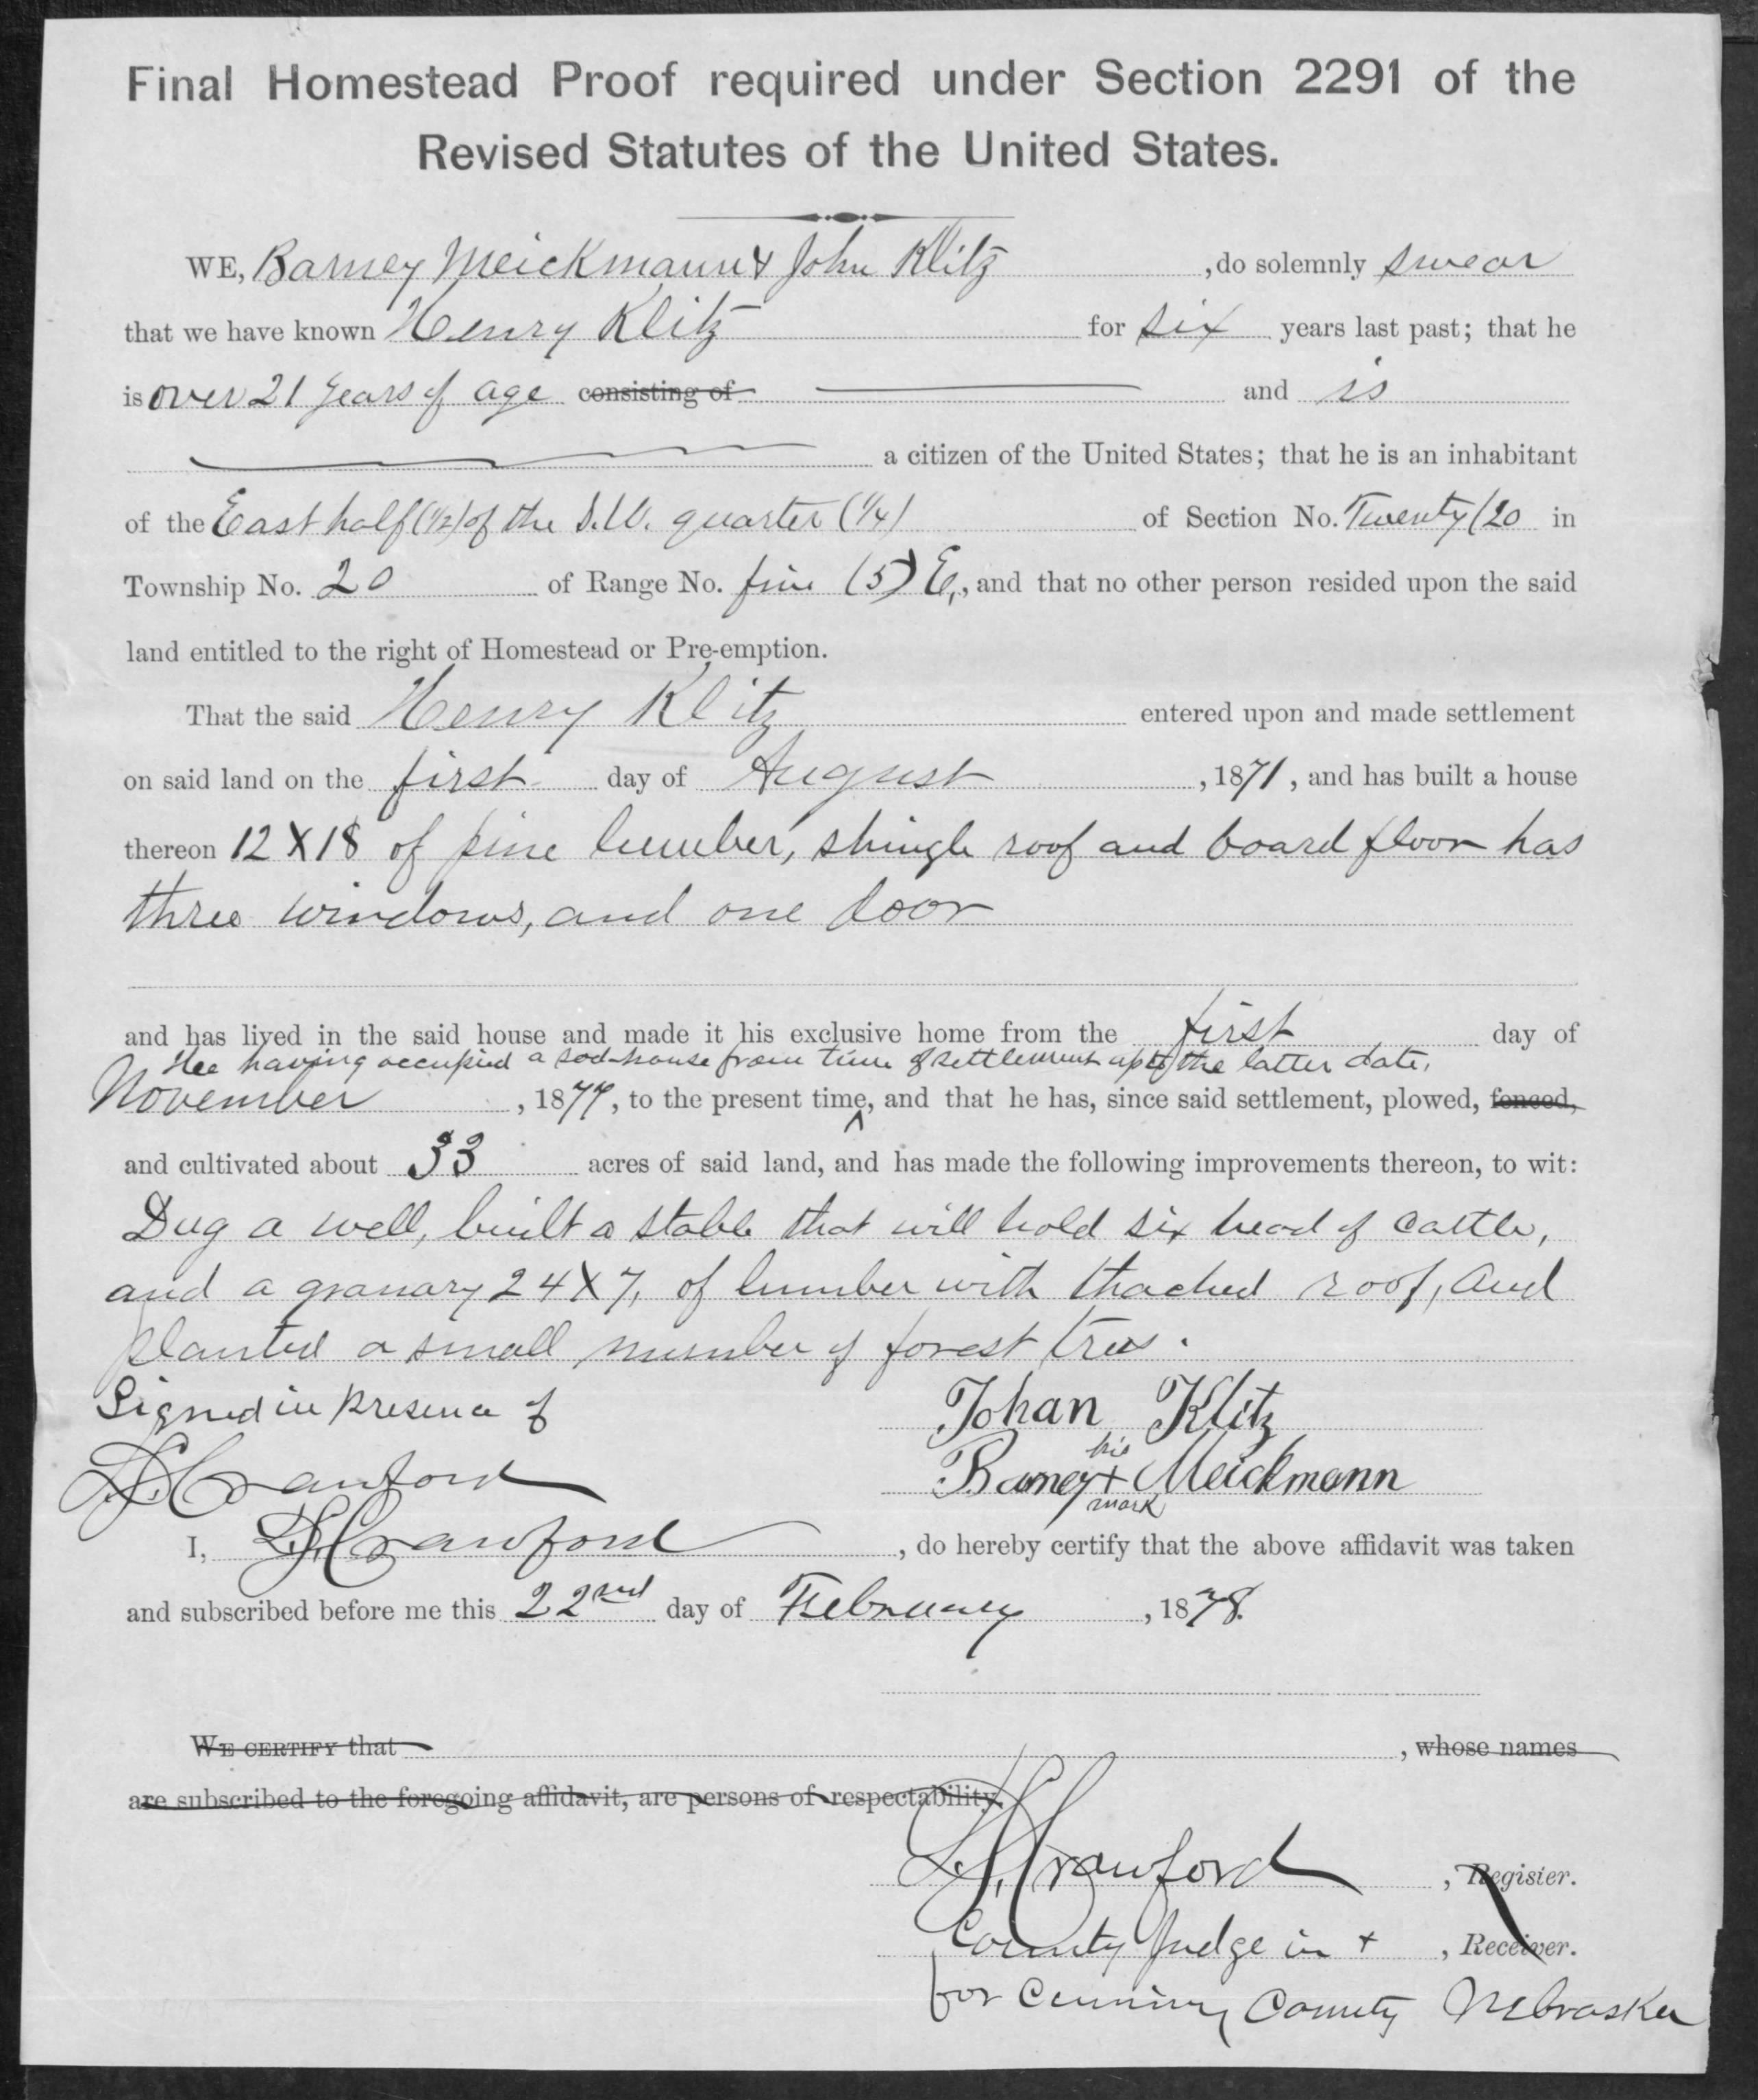 Final Homestead Proof required under Section 2291 of the
Revised Statutes of the United States.
WE, Barney Meickmann & John Klitz , do solemnly swear
that we have known Henry Klitz for six years last past; that he
is over 21 years of age consisting of and is
a citizen of the United States; that he is an inhabitant
of the East half (1/2) of the S.W. quarter (1/4) of Section No. Twenty (20 in
Township No. 20 of Range No. five (5) E., and that no other person resided upon the said
land entitled to the right of Homestead or Pre-emption.
That the said Henry Klitz entered upon and made settlement
on said land on the first day of August , 1871, and has built a house
thereon 12 X 18 of pine lumber, shingle roof and board floor has
three windows, and one door
and has lived in the said house and made it his exclusive home from the first day of
Hee having occupied a sod-house from time of settlement up to the latter date,
November , 1877, to the present time, and that he has, since said settlement, plowed, fenced,
and cultivated about 33 acres of said land, and has made the following improvements thereon, to wit:
Dug a well, built a stable that will hold six head of cattle,
and a granary 24 X 7, of lumber with thached roof, and
planted a small number of forest trees.
Signed in presence of Johan Klitz
his
Crawford Barney + Meickmann
mark
I, Crawford , do hereby certify that the above affidavit was taken
and subscribed before me this 22nd day of February , 1878.
WE CERTIFY that , whose names
are subscribed to the foregoing affidavit, are persons of respectability.
Crawford , Register.
County Judge in + , Receiver.
for Cuming County Nebraska